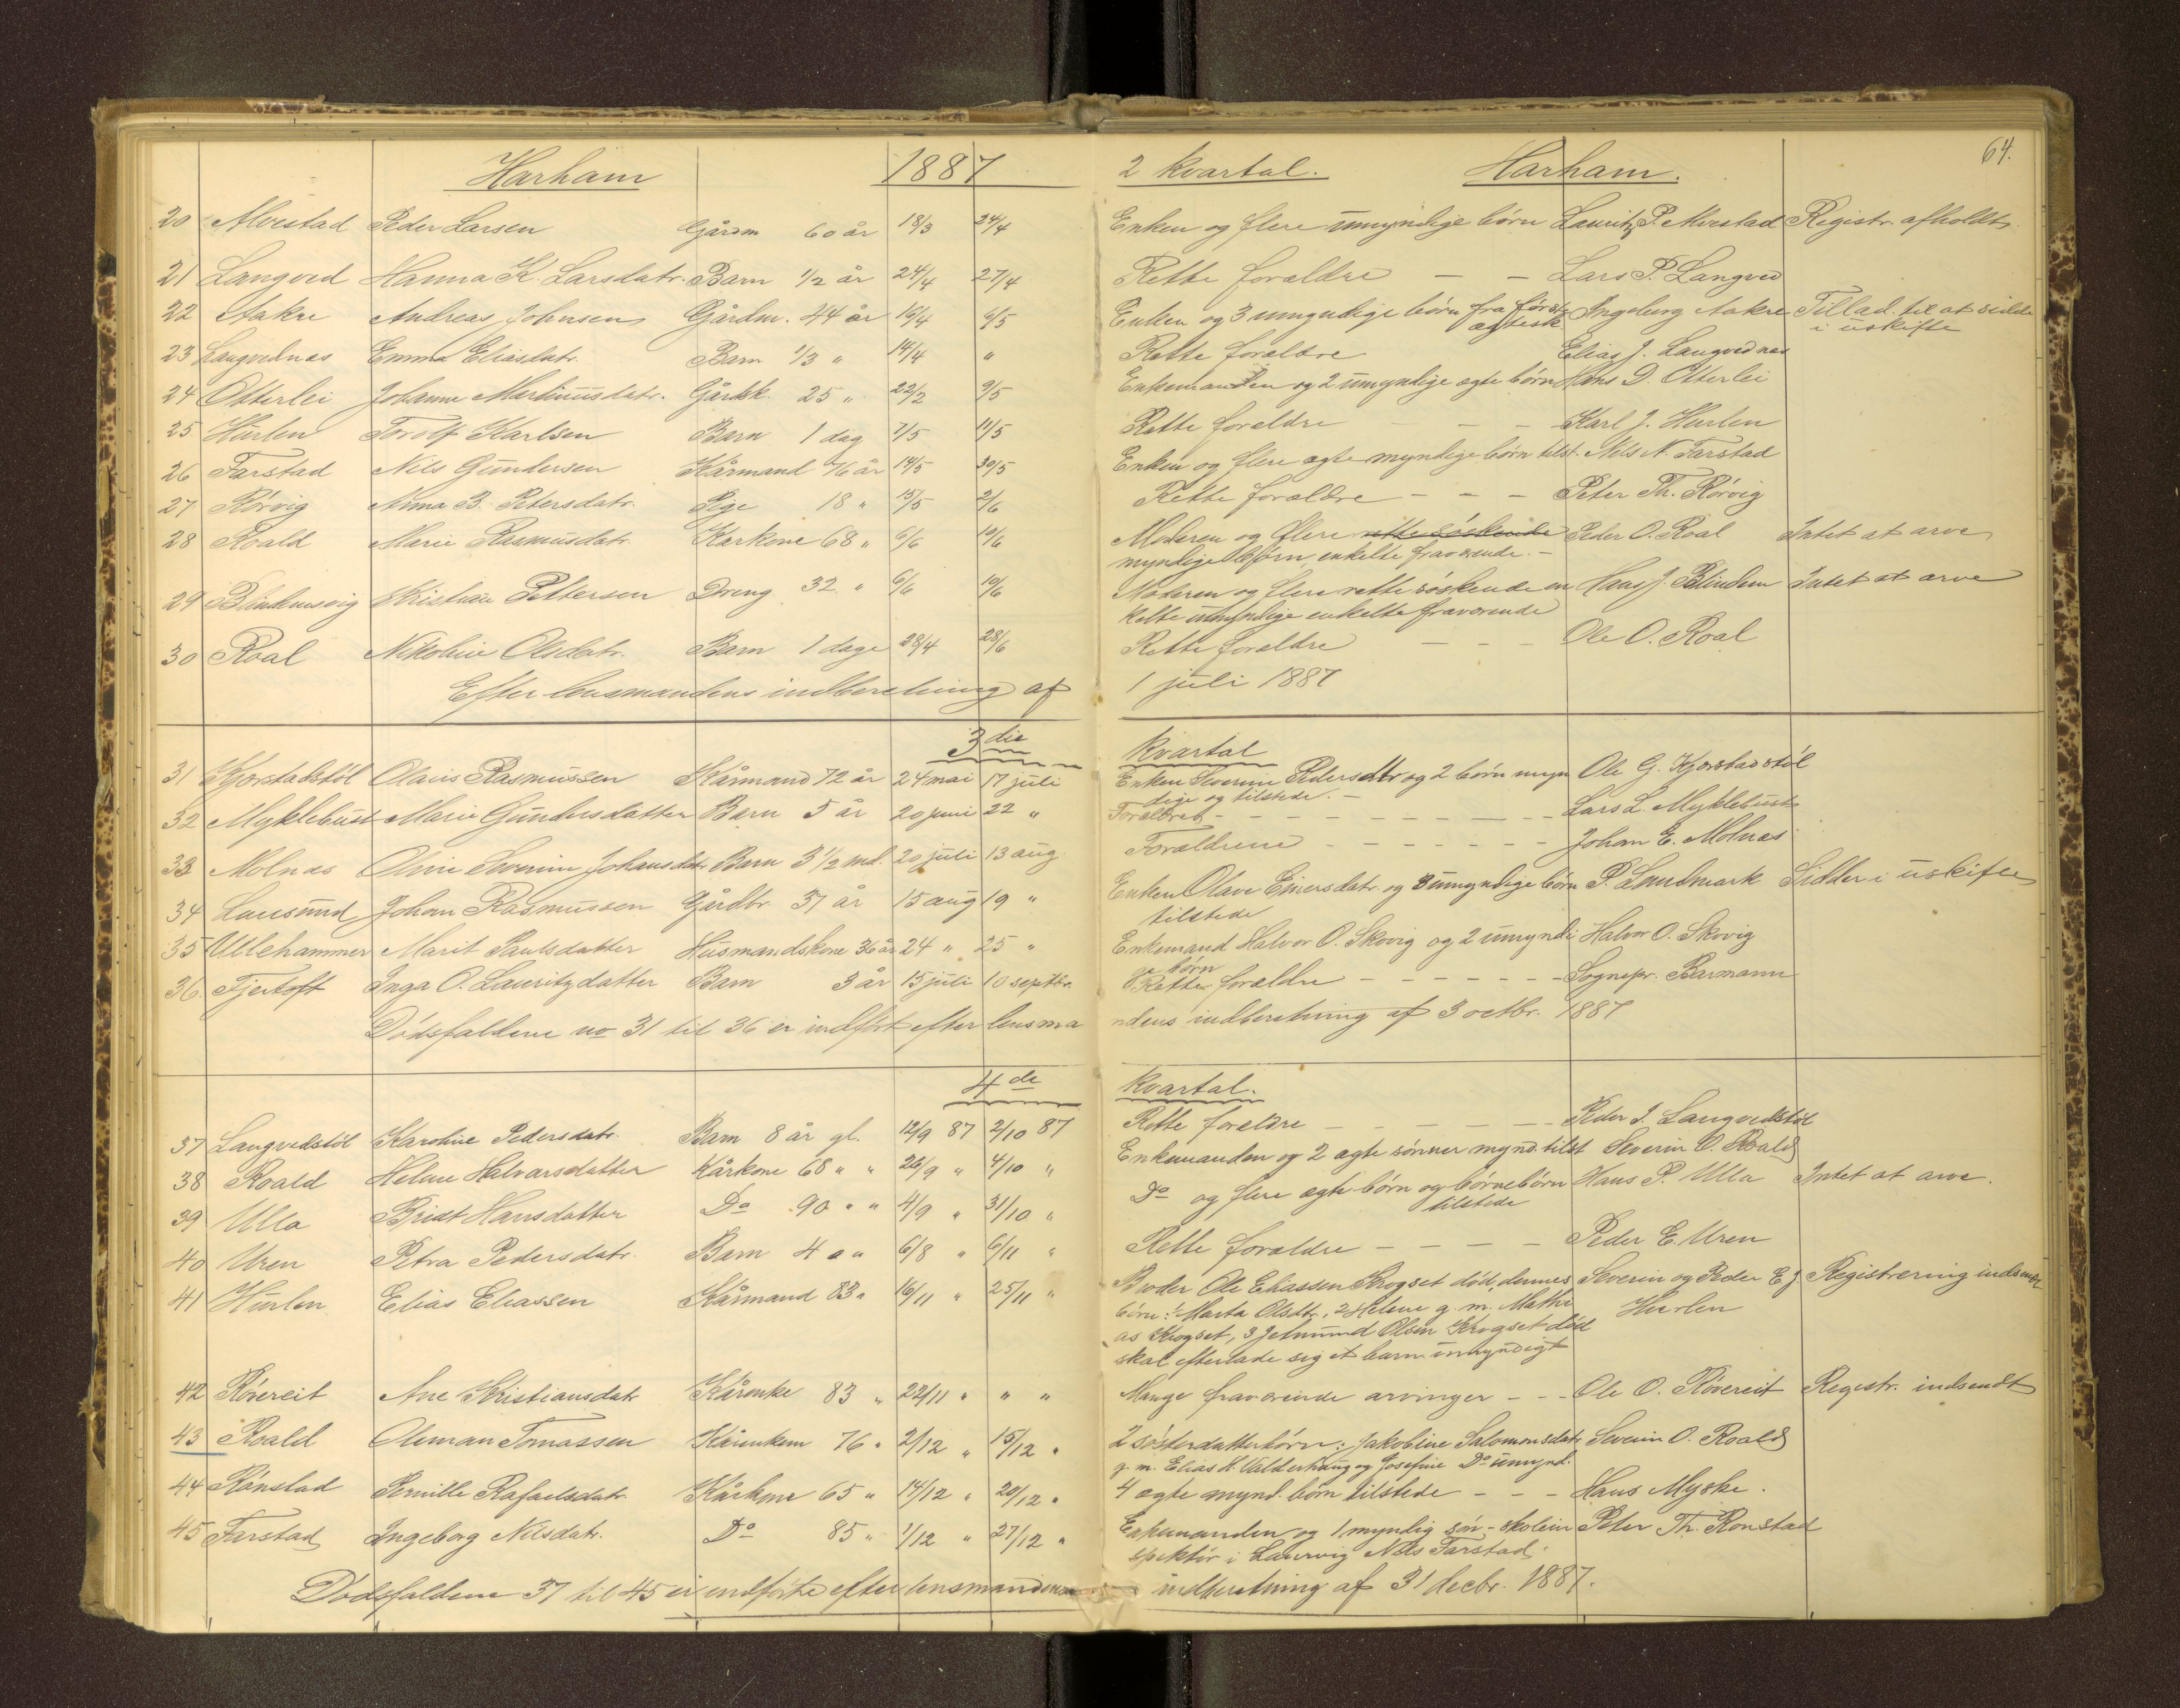 Harham 1887 2 kvartal. Harham. 64.
20 Alvestad Peder Larsen Gårdm 60 år 18/3 24/4 Enken og flere umyndige børn Lauritz P. Alvestad Registr. afholdt.
21 Langved Hanna K. Larsdatr. Barn 1/2 år 24/4 27/4 Rette forældre — — Lars P. Langved
22 Aakre Andreas Johnsen Gårdm. 44 år 16/4 6/5 Enken og 3 umyndige børn fra første Ingeborg Aakre Tillad. til at sidde
ægtesk i uskifte
23 Langvednæs Emma Eliasdatr. Barn 1/3 " 14/4 " Rette forældre Elias J. Langvednæs
24 Otterlei Johanne Martinusdatr. Gårdk. 25 " 22/2 9/5 Enkemanden og 2 umyndige ægte børn Hans D. Otterlei
25 Hurlen Torolf Karlsen Barn 1 dag 7/5 11/5 Rette forældre — — — Karl J. Hurlen
26 Farstad Nils Gundersen Kårmand 76 år 14/5 30/5 Enken og flere ægte myndige børn tilst. Nils N. Farstad
27 Rörvig Anna B. Petersdatr. Pige 18 " 15/5 2/6 Rette forældre — — — Peter Th. Rörvig
28 Roald Marie Rasmusdatr. Karkone 68 " 6/6 10/6 Moderen og flere rette söskende Peder O. Roal Intet at arve
myndige børn enkelte fraværende. —
29 Blindemsvig Kristian Pettersen Dreng 32 " 6/6 10/6 Moderen og flere rette söskende en Hans J. Blindem Intet at arve
kelte umyndige enkelte fraværende
30 Roal Nikoline Olsdatr. Barn 1 dage 28/4 28/6 Rette forældre — — — Ole O. Roal
Efter lensmandens indberetning af 1 juli 1887
3die kvartal
31 Kjærstadstöl Olaus Rasmussen Kårmand 72 år 24 mai 17 juli Enken Severine Pedersdtr og 2 børn myn Ole G. Kjærstadstöl
dige og tilstede. —
32 Myklebust Marie Gundersdatter Barn 5 år 20 juni 22 " Forældre — — — Lars L. Myklebust
33 Molnæs Oline Severine Johansdatr. Barn 3 1/2 md. 20 juli 13 aug. Forældrene — — — Johan E. Molnæs
34 Lausund Johan Rasmussen Gårdbr. 37 år 15 aug 19 " Enken Olave Einersdatr. og 3 umyndige børn P. Landmark Sidder i uskifte
tilstede
35 Ullehammer Marit Paulsdatter Husmandskone 36 år 24 " 25 " Enkemand Halvor O. Skovig og 2 umyndi Halvor O. Skovig
ge børn
36. Fjertoft Inga O. Lauritzdatter Barn 3 år 15 juli 10 septbr. Rette forældre — — — Sognepr. Barmann
Dödsfaldene no 31 til 36 er indfört efter lensma ndens indberetning af 3 octbr. 1887
4de kvartal.
37 Langvedstöl Karoline Pedersdatr. Barn 8 år gl. 12/9 87 2/10 87 Rette forældre — — — Peder J. Langvedstöl
38 Roald Helene Halvarsdatter Kårkone 68 " " 26/9 " 4/10 " Enkemanden og 2 ægte sönner mynd. tilst Severin O. Roald
39 Ulla Bridt Hansdatter Do 90 " " 4/9 " 31/10 " Do og flere ægte børn og børnebørn Hans P. Ulla Intet at arve.
tilstede
40 Uren Petra Pedersdatr. Barn 4 " " 6/8 " 6/11 " Rette forældre — — — — Peder E. Uren
41 Hurlen Elias Eliassen Kårmand 83 " 16/11 " 25/11 " Broder Ole Eliassen Krogset död, dennes Severin og Peder E. Registrering indsendt
börn: 1 Marta Olsdtr., 2 Helene g. m. Mathi Hurlen
as Krogset, 3 Jetmund Olsen Krogset död
skal efterlade sig et barn umyndigt
42 Rövereit Ane Kristiansdatr Kårenke 83 " 22/11 " " " Mange fraværende arvinger — — Ole O. Rövereit Registr. indsendt
43 Roald Oleman Tomassen Kårenkem 76 " 2/12 " 15/12 " 2 søsterdatterbörn: Jakobine Salomonsdatr Severin O. Roald
g. m. Elias K. Valderhaug og Josefine Do umynd.
44 Rönstad Pernille Rafaelsdatr. Kårkone 65 " 14/12 " 20/12 " 4 ægte mynd. børn tilstede — — — Hans Myske.
45 Farstad Ingeborg Nilsdatr. Do 85 " 1/12 " 27/12 " Enkemanden og 1 myndig sön - skolein Peter Th. Ronstad
spektör i Laurvig Nils Farstad.
Dödsfaldene 37 til 45 er indförte efter lensmandens indberetning af 31 decbr. 1887.